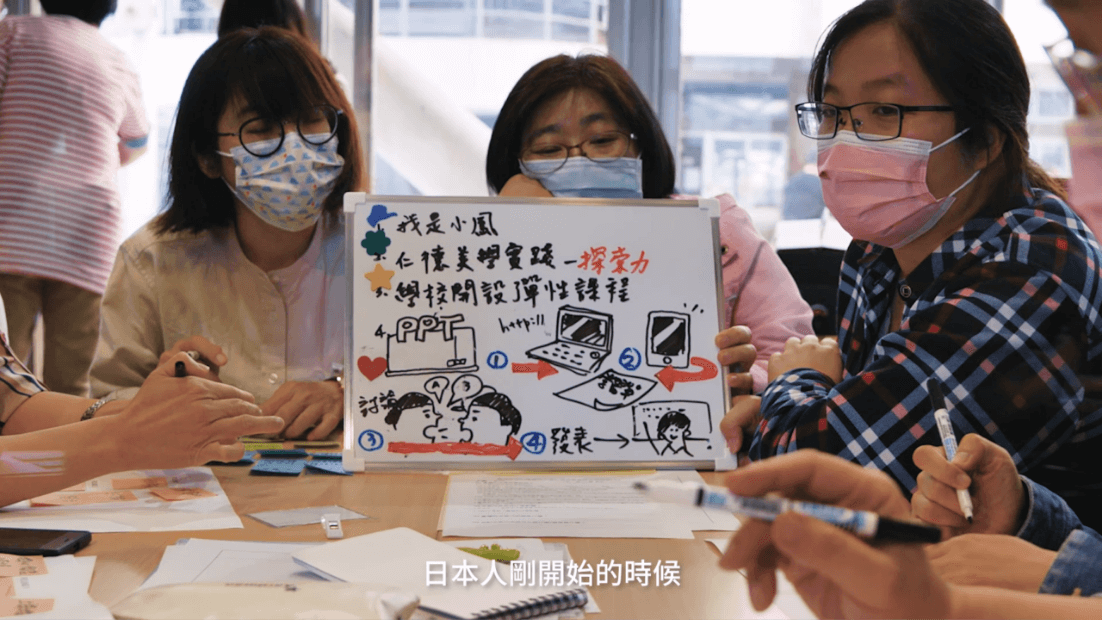 我是小鳳
仁德美學實踐－探索力
學校開設彈性課程
4. PPT
http://
① ②
討論
A 3
③
④ 發表→
日本人剛開始的時候